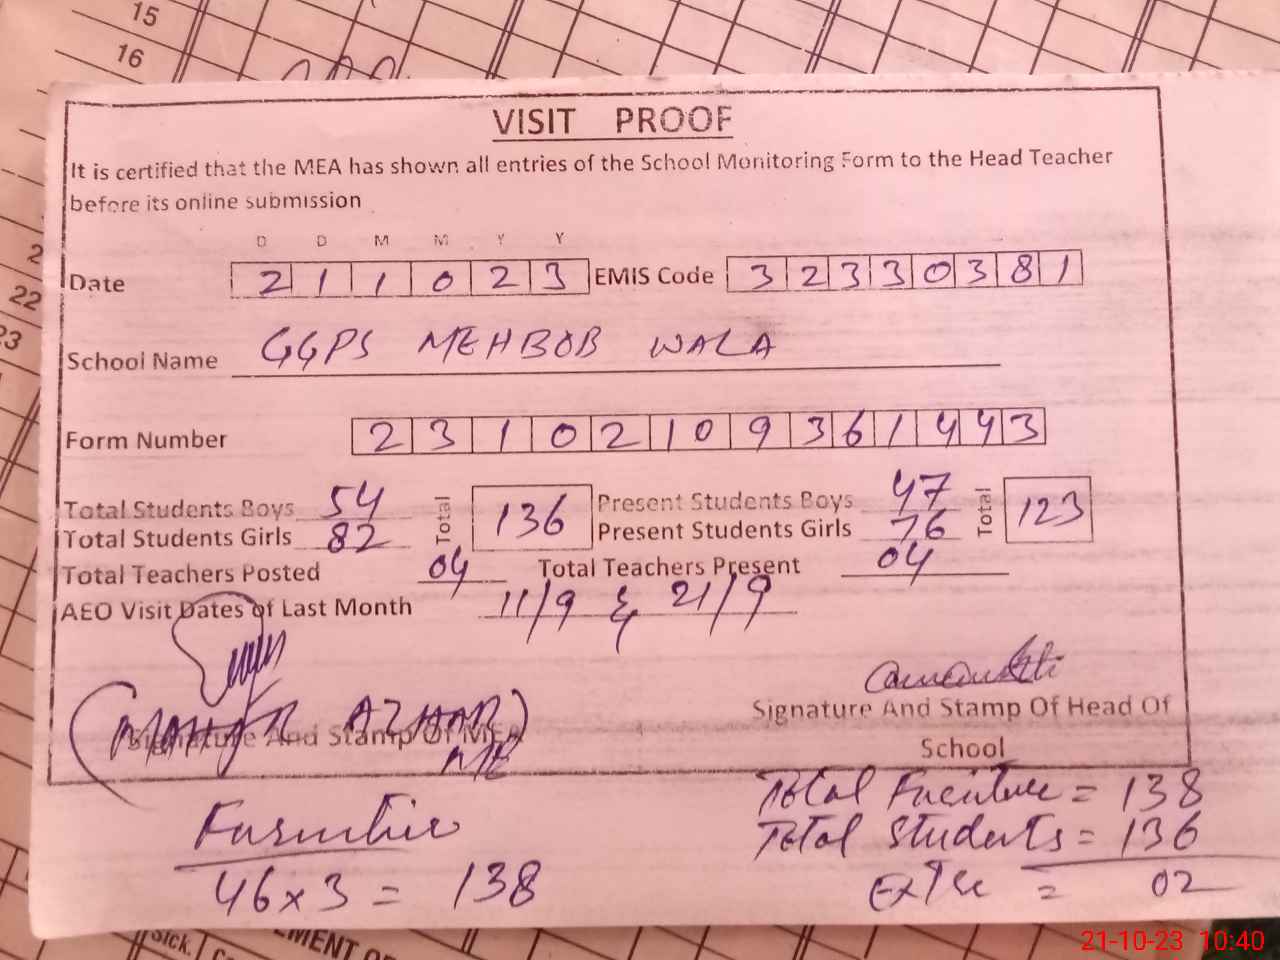 15
16
VISIT PROOF
It is certified that the MEA has shown all entries of the School Monitoring Form to the Head Teacher
before its online submission
D D M M Y Y
Date 2 1 1 0 2 3 EMIS Code 3 2 3 3 0 3 8 1
2
22
23
School Name GGPS MEHBOB WALA
Form Number 2 3 1 0 2 1 0 9 3 6 1 4 4 3
Total Students Boys 54 Total 136 Present Students Boys 47 Total 123
Total Students Girls 82 Present Students Girls 76
Total Teachers Posted 04 Total Teachers Present 04
AEO Visit Dates of Last Month 11/9 & 21/9
AZHAR
Signature And Stamp Of MEA
Signature And Stamp Of Head Of
School
Total Furniture = 138
Total Students = 136
Extra = 02
Furnitire
46x3 = 138
Sick.
EMENT OF
21-10-23 10:40